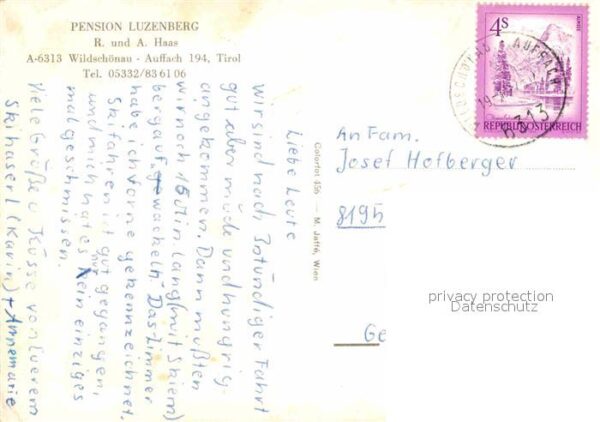 PENSION LUZENBERG
R. und A. Haas
A-6313 Wildschönau - Auffach 194, Tirol
Tel. 05332/83 61 06
Liebe Leute
wir sind nach 3stündiger Fahrt
gut aber müde und hungrig
angekommen. Dann mußten
wir noch 15 Min lang (mit Skiern)
bergauf "wackeln". Das Zimmer
habe ich vorne gekennzeichnet.
Skifahren ist gut gegangen,
und mich hat es nur ein einziges
mal geschmissen.
Viele Grüße u Küsse von Eurem
Skihaserl (Karin) + Annemarie
Colorfot 456 — M. Jaffé, Wien
4 S
REPUBLIK ÖSTERREICH
AUFFACH
6313
An Fam.
Josef Hofberger
8195
Ge
privacy protection
Datenschutz